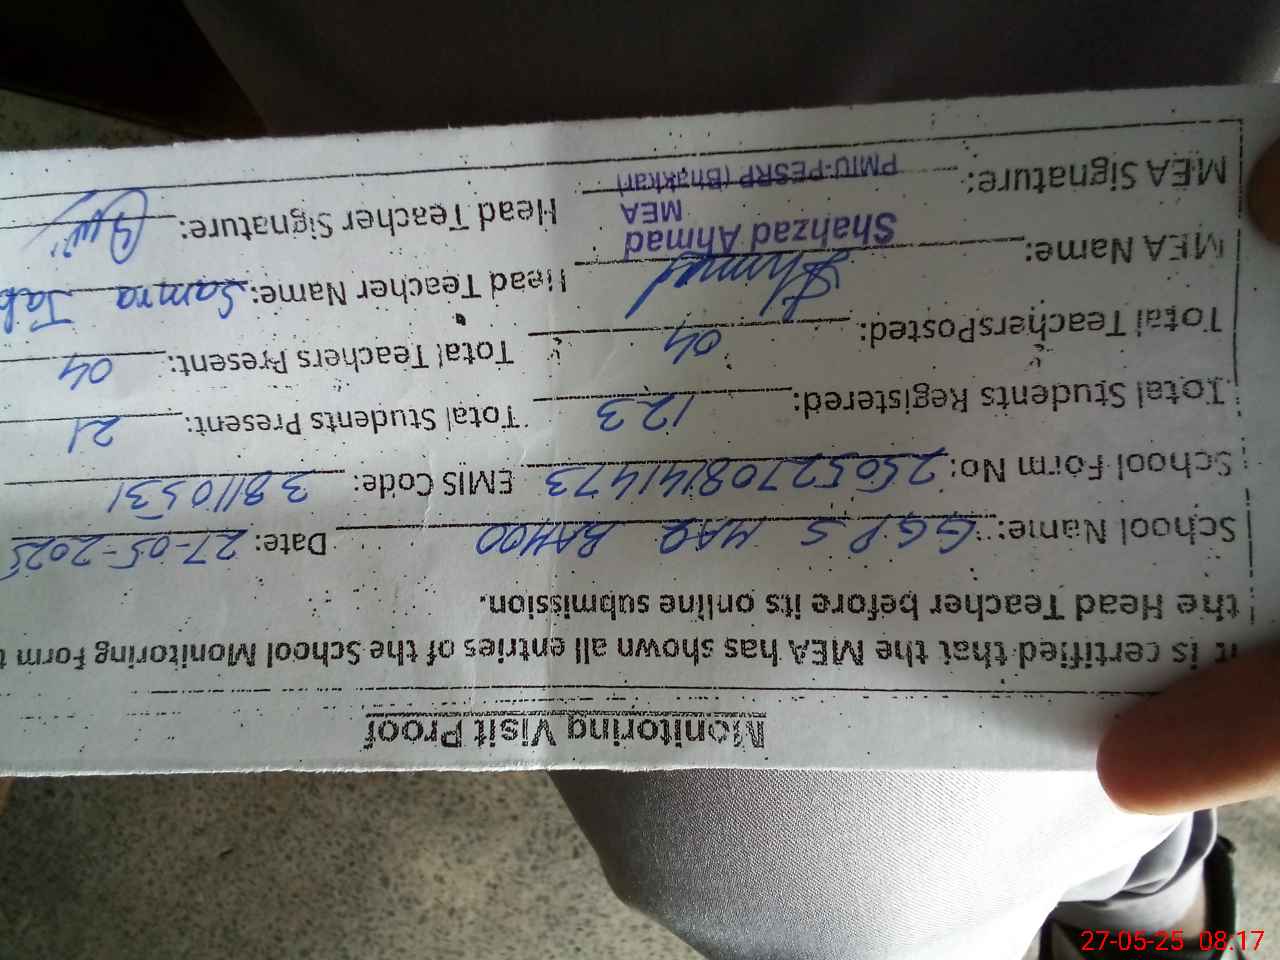 Monitoring Visit Proof
It is certified that the MEA has shown all entries of the School Monitoring Form t
the Head Teacher before its online submission.
School Name: GGPS HAQ BAHOO Date: 27-05-2025
School Form No: 25052708141473 EMIS Code: 38110531
Total Students Registered: 123 Total Students Present: 21
Total TeachersPosted: 04 Total Teachers Present: 04
MEA Name: Head Teacher Name: Samra
Shahzad Ahmad
MEA
MEA Signature: Head Teacher Signature:
PMIU-PESRP (Bhakkar)
27-05-25 08:17